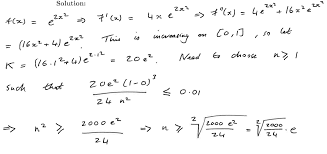 Solution:
f(x) = e^{2x²} ⇒ f'(x) = 4x e^{2x²} ⇒ f''(x) = 4e^{2x²} + 16x² e^{2x²}
= (16x² + 4) e^{2x²}. This is increasing on [0,1], so let
K = (16·1² + 4) e^{2·1²} = 20e². Need to choose n ≥ 1
such that \frac{20e² (1-0)³}{24 n²} ≤ 0.01
⇒ n² ≥ \frac{2000 e²}{24} ⇒ n ≥ \sqrt[2]{\frac{2000 e²}{24}} = \sqrt[2]{\frac{2000}{24}} · e